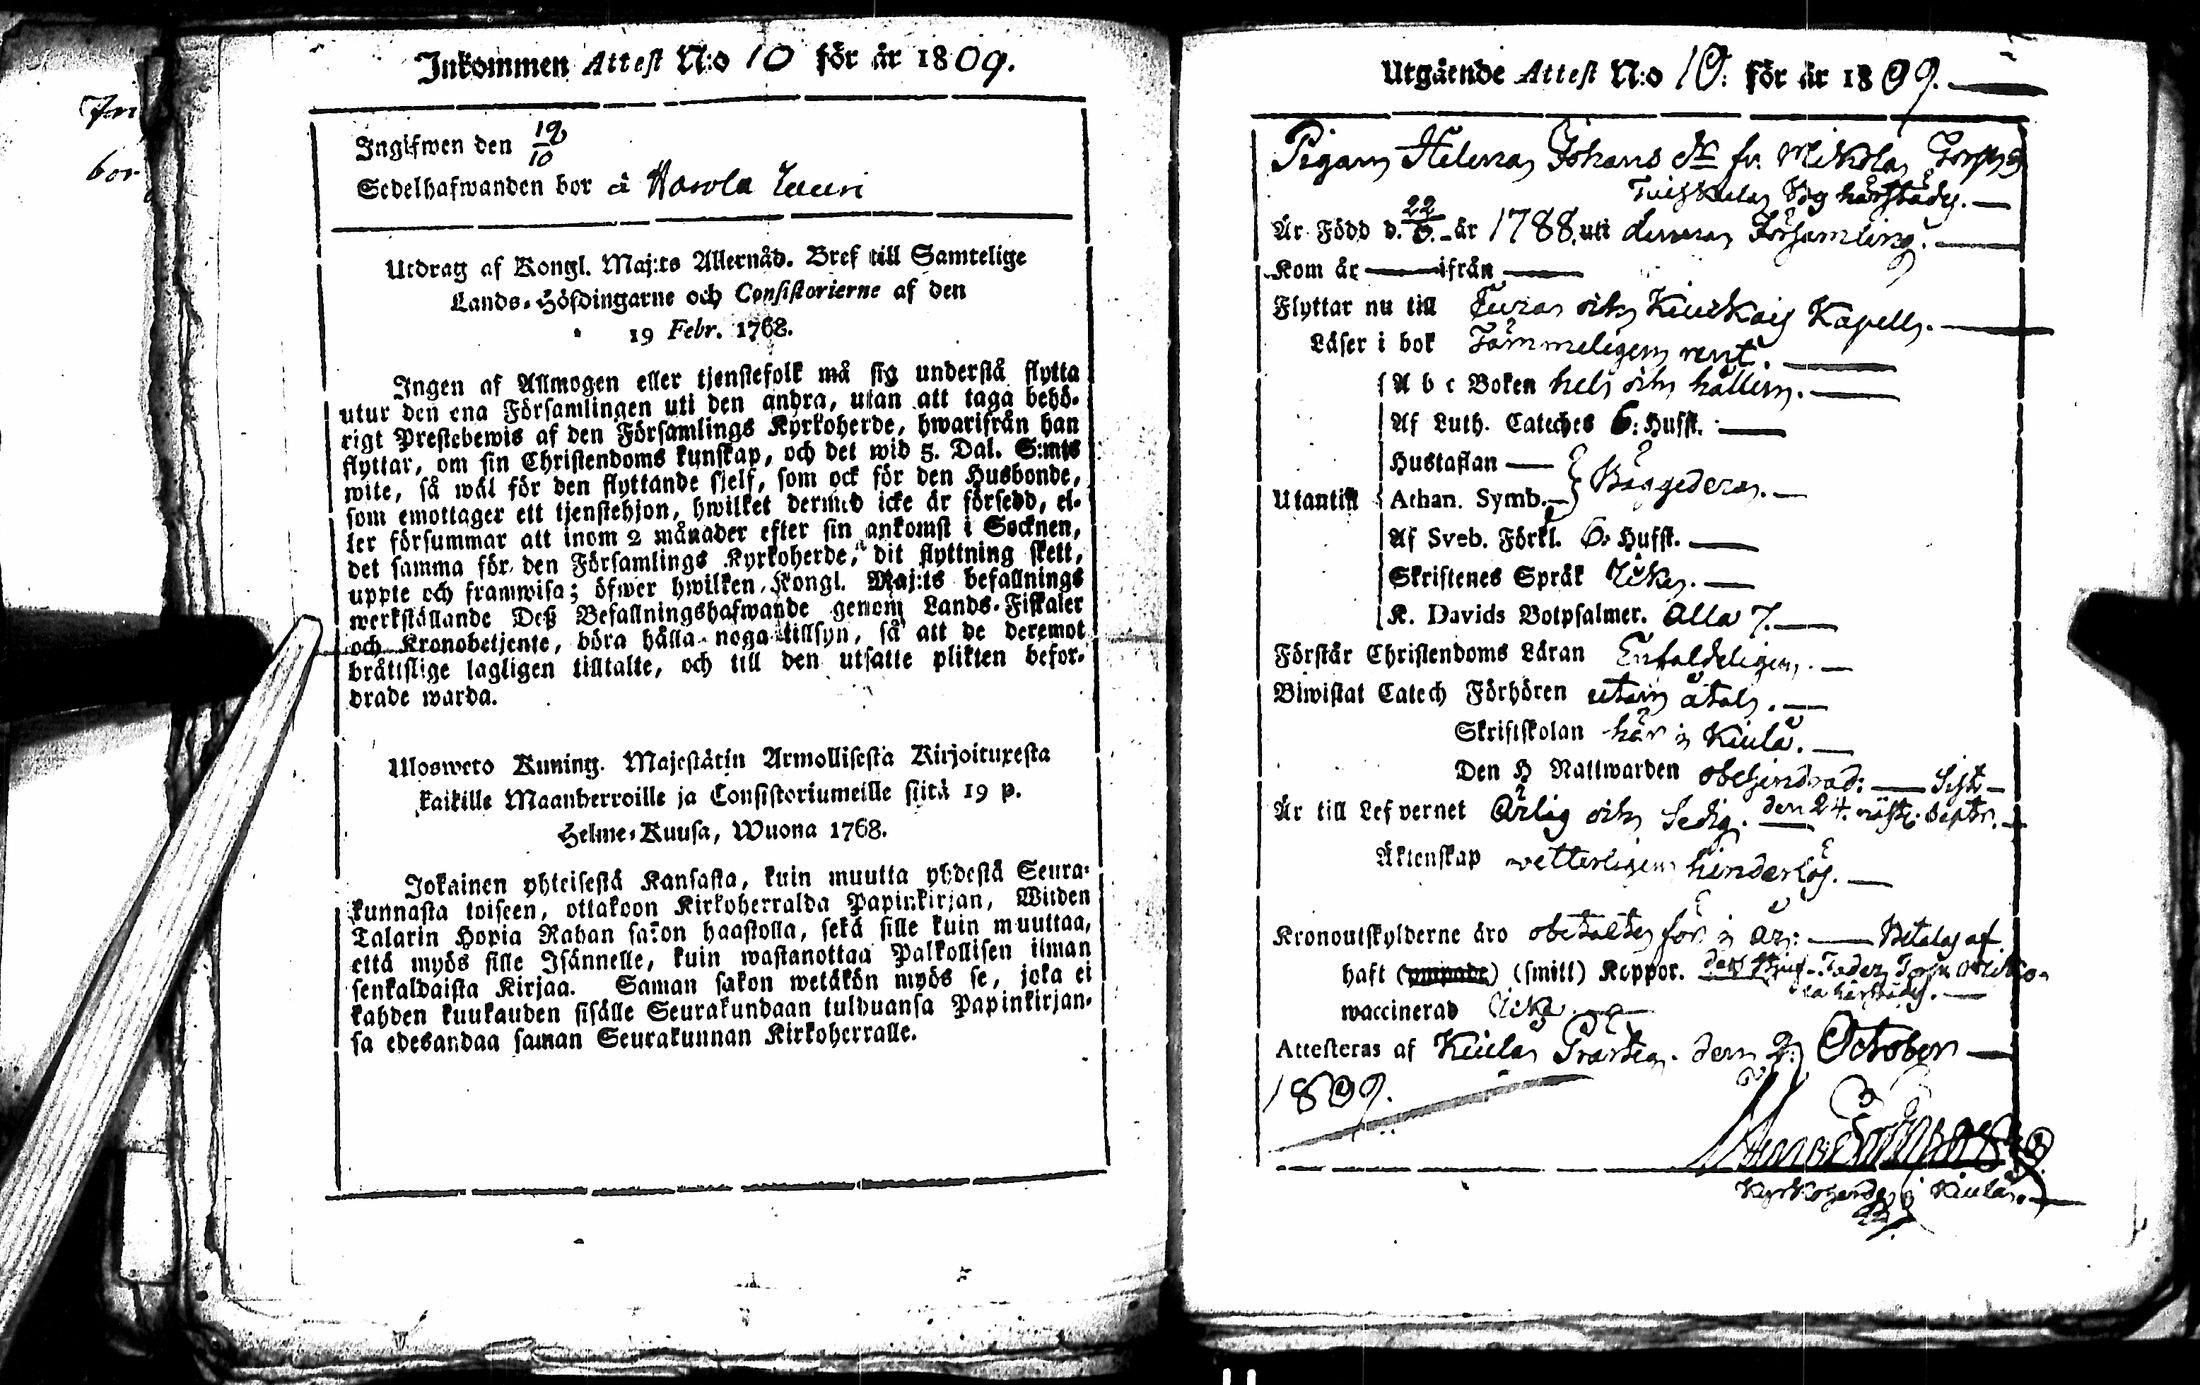 Inkommen Attest N:o 10 för år 1809.
Ingifwen den 19/10
Sedelhafwanden bor å Harola Lauri
Utdrag af Kongl. Maj:ts Allernåd. Bref till Samtelige
Lands-Höfdingarne och Consistorierne af den
19 Febr. 1768.
Ingen af Allmogen eller tjenstefolk må sig understå flytta
utur den ena Församlingen uti den andra, utan att taga behö-
rigt Prestebewis af den Församlings Kyrkoherde, hwarifrån han
flyttar, om sin Christendoms kunskap, och det wid 5. Dal. S:mts
wite, så wäl för den flyttande sjelf, som ock för den Husbonde,
som emottager ett tjenstehjon, hwilket dermed icke är försedd, el-
ler försummar att inom 2 månader efter sin ankomst i Socknen,
det samma för den Församlings Kyrkoherde, dit flyttning skett,
uppte och framwisa; öfwer hwilken Kongl. Maj:ts befallnings
werkställande Deß Befallningshafwande genom Lands-Fiskaler
och Kronobetjente, böra hålla noga tillsyn, så att de deremot
bråttslige lagligen tilltalte, och till den utsatte plikten befor-
drade warda.
Uloswcto Kuning. Majestätin Armollisesta Kirjoituxesta
kaikille Maanherroille ja Consistoriumeille siitä 19 p.
Helme-Kuusa, Wuona 1768.
Jokainen yhteisestä Kansasta, kuin muutta yhdestä Seura-
kunnasta toiseen, ottakoon Kirkoherralda Papinkirjan, Wiiden
Talarin Hopia Rahan sakon haastolla, sekä sille kuin muuttaa,
että myös sille Isännelle, kuin wastanottaa Palkollisen ilman
senkaldaista Kirjaa. Saman sakon wetäkön myös se, joka ei
kahden kuukauden sisälle Seurakundaan tulduansa Papinkirjan-
sa edesandaa saman Seurakunnan Kirkoherralle.
Utgående Attest N:o 10. för år 1809.
Pigan Helena Johans dr fr. Mikola Torp
härstädes.
Är Född d. 22/6. år 1788. uti denna Församling.
Kom år ifrån
Flyttar nu till Eura och Kiukais Kapell.
Läser i bok Tämmeligen rent.
A b c Boken hels och hållin.
Af Luth. Cateches 6: Hufst.
Hustaflan
Bäggedera.
Utantill Athan. Symb.
Af Sveb. Förkl. 6. Hufst.
Skriftenes Språk Icke.
K. Davids Botpsalmer. Alla 7.
Förstår Christendoms Läran Enfaldeligen.
Biwistat Catech Förhören utan åtal.
Skriftskolan här i Kiula.
Den H Nattwarden obehindrad: Sist
Är till Lefvernet Ärlig och Sedig. den 24. näst. Septr.
Äktenskap wetterligen hinderlös.
Kronoutskylderne äro obetalte för i år: Betalas af
haft (ympade) (smitt) Koppor. Fader
härstädes.
waccinerad Icke.
Attesteras af Kiula Prästeg. den 2. October
1809.
Kyrkoherde i Kiula.